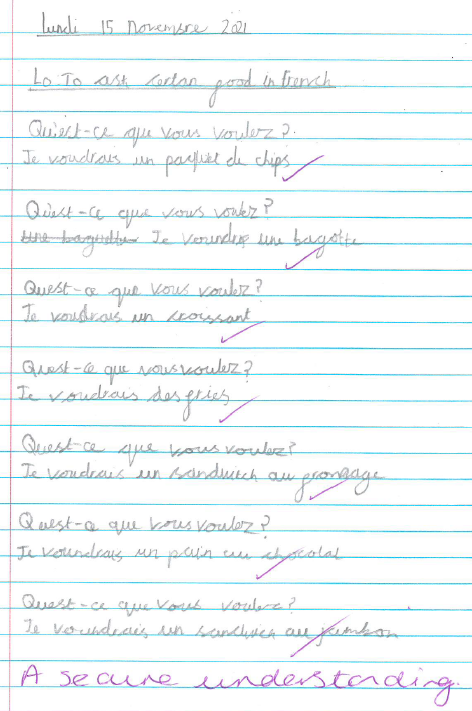 Lundi 15 Novembre 2021
Lo-To ask certan good in french
Qu'est-ce que vous voulez?
Je voudrais un paquet de chips
Qu'est-ce que vous voulez?
Une baguette Je voundrie une bagotte
Quest-ce que vous voulez?
Je voudrais un croissant
Quest-ce que vous voulez?
Je voudrais des fries
Quest-ce que vous voulez?
Je voudrais un sandwich au fromgage
Quest-ce que vous voulez?
Je voundrais un pain au chocolat
Quest-ce que vous voulez?
Je voundrais un sandwich au jambon
A secure understanding.